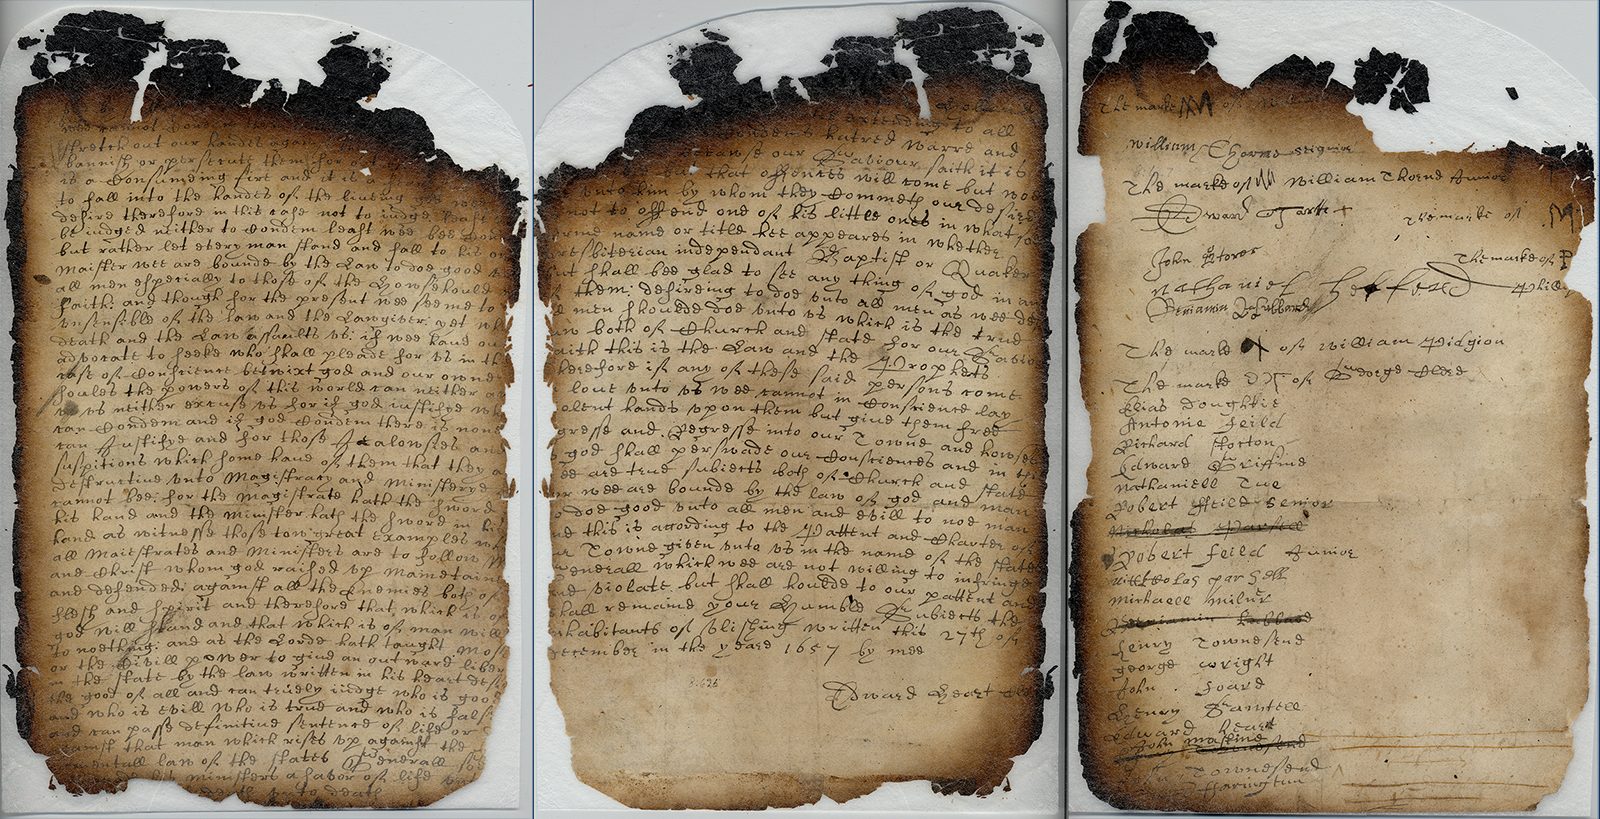 wee cannot
stretch out our handes against
bannish or persecute them for out
is a Consuminge fire and it is a
to fall into the handes of the liveing god wee
desire therefore in this case not to iudge least
be iudged neither to Condem least wee bee Con
but rather let every man stand and fall to his on
Maister wee are bounde by the Law to doe good
all men especially to those of the Howsehould
faith; and though for the present wee seeme to
unsensible of the law and the Lawgiver; yet wh
death and the Law assaults us; if wee have ou
advocate to seeke who shall pleade for us in th
case of Conscience betwixt god and our owne
soules the powers of this world can neither a
us neither excuse us for if god iustifye wh
can Condem and if god Condem there is none
can Justifye and for those Jealowsies and
suspitions which some have of them that they a
destructive unto Magistracy and Ministerye
cannot bee; for the Magistrate hath the sword
his hand and the Minister hath the sword in his
hand as witnesse those tow great examples wh
all Maiestrates and Ministers are to follow M
and Christ whom god raised up Maintained
and defended; against all the Enemies both of
flesh and spirit and therefore that which is of
god will stand and that which is of man will
to noething: and as the Lorde hath taught Mos
or the Civill power to give an outward liber
in the state by the law written in his heart desi
the good of all and can truely iudge who is good
and who is evill who is true and who is false
and can passe definitive sentence of life or
against that man which rises up against the
mentall law of the states Generall so
his ministers a savor of life
death unto death
extending to all
Condems hatred Warre and
because our Saviour saith it is
but that offences will come but woe
unto him by whom they Commeth our desire
not to offend one of his little ones in what soe
forme name or title hee appeares in whether
presbiterian independant Baptist or Quaker
but shall bee glad to see any thing of god in an
of them: desireing to doe unto all men as wee de
all men shoulde doe unto us which is the true
law both of Church and state for our Savio
saith this is the Law and the Prophets
Therefore if any of these said persons come
in love unto us wee cannot in Conscience lay
violent hands upon them but give them free
Egresse and Regresse into our Towne and howses
as god shall perswade our Consciences and in this
wee are true subiects both of Church and state
for wee are bounde by the law of god and man
to doe good unto all men and evill to noe man
and this is acording to the Pattent and Charter of
our Towne given unto us in the name of the states
Generall which wee are not willing to infringe
and violate but shall houlde to our pattent and
shall remaine your Humble Subiects the
inhabitants of Vlishing written this 27th of
December in the yeare 1657 by mee
Edward Heart
The marke of
William Thorne Seignior
The marke of William Thorne Junior
Edward Tarne The marke of
John Storer The marke of
Nathaniel Hefferd
Benjamin Hubbard
The marke of William Pidgion
The marke of George Clere
Elias Doughtie
Antonie Feild
Richard Stocton
Edward Griffine
Nathaniell Tue
Robert Feild Senior
Nickolas Parsell
Robert Feild Junior
Nickolas Parsell
Michaell Milner
Benjamin Hubbard
Henry Townesend
George Wright
John Foard
Henry Samtell
Edward Heart
John Mastine
John Townesend
Farington